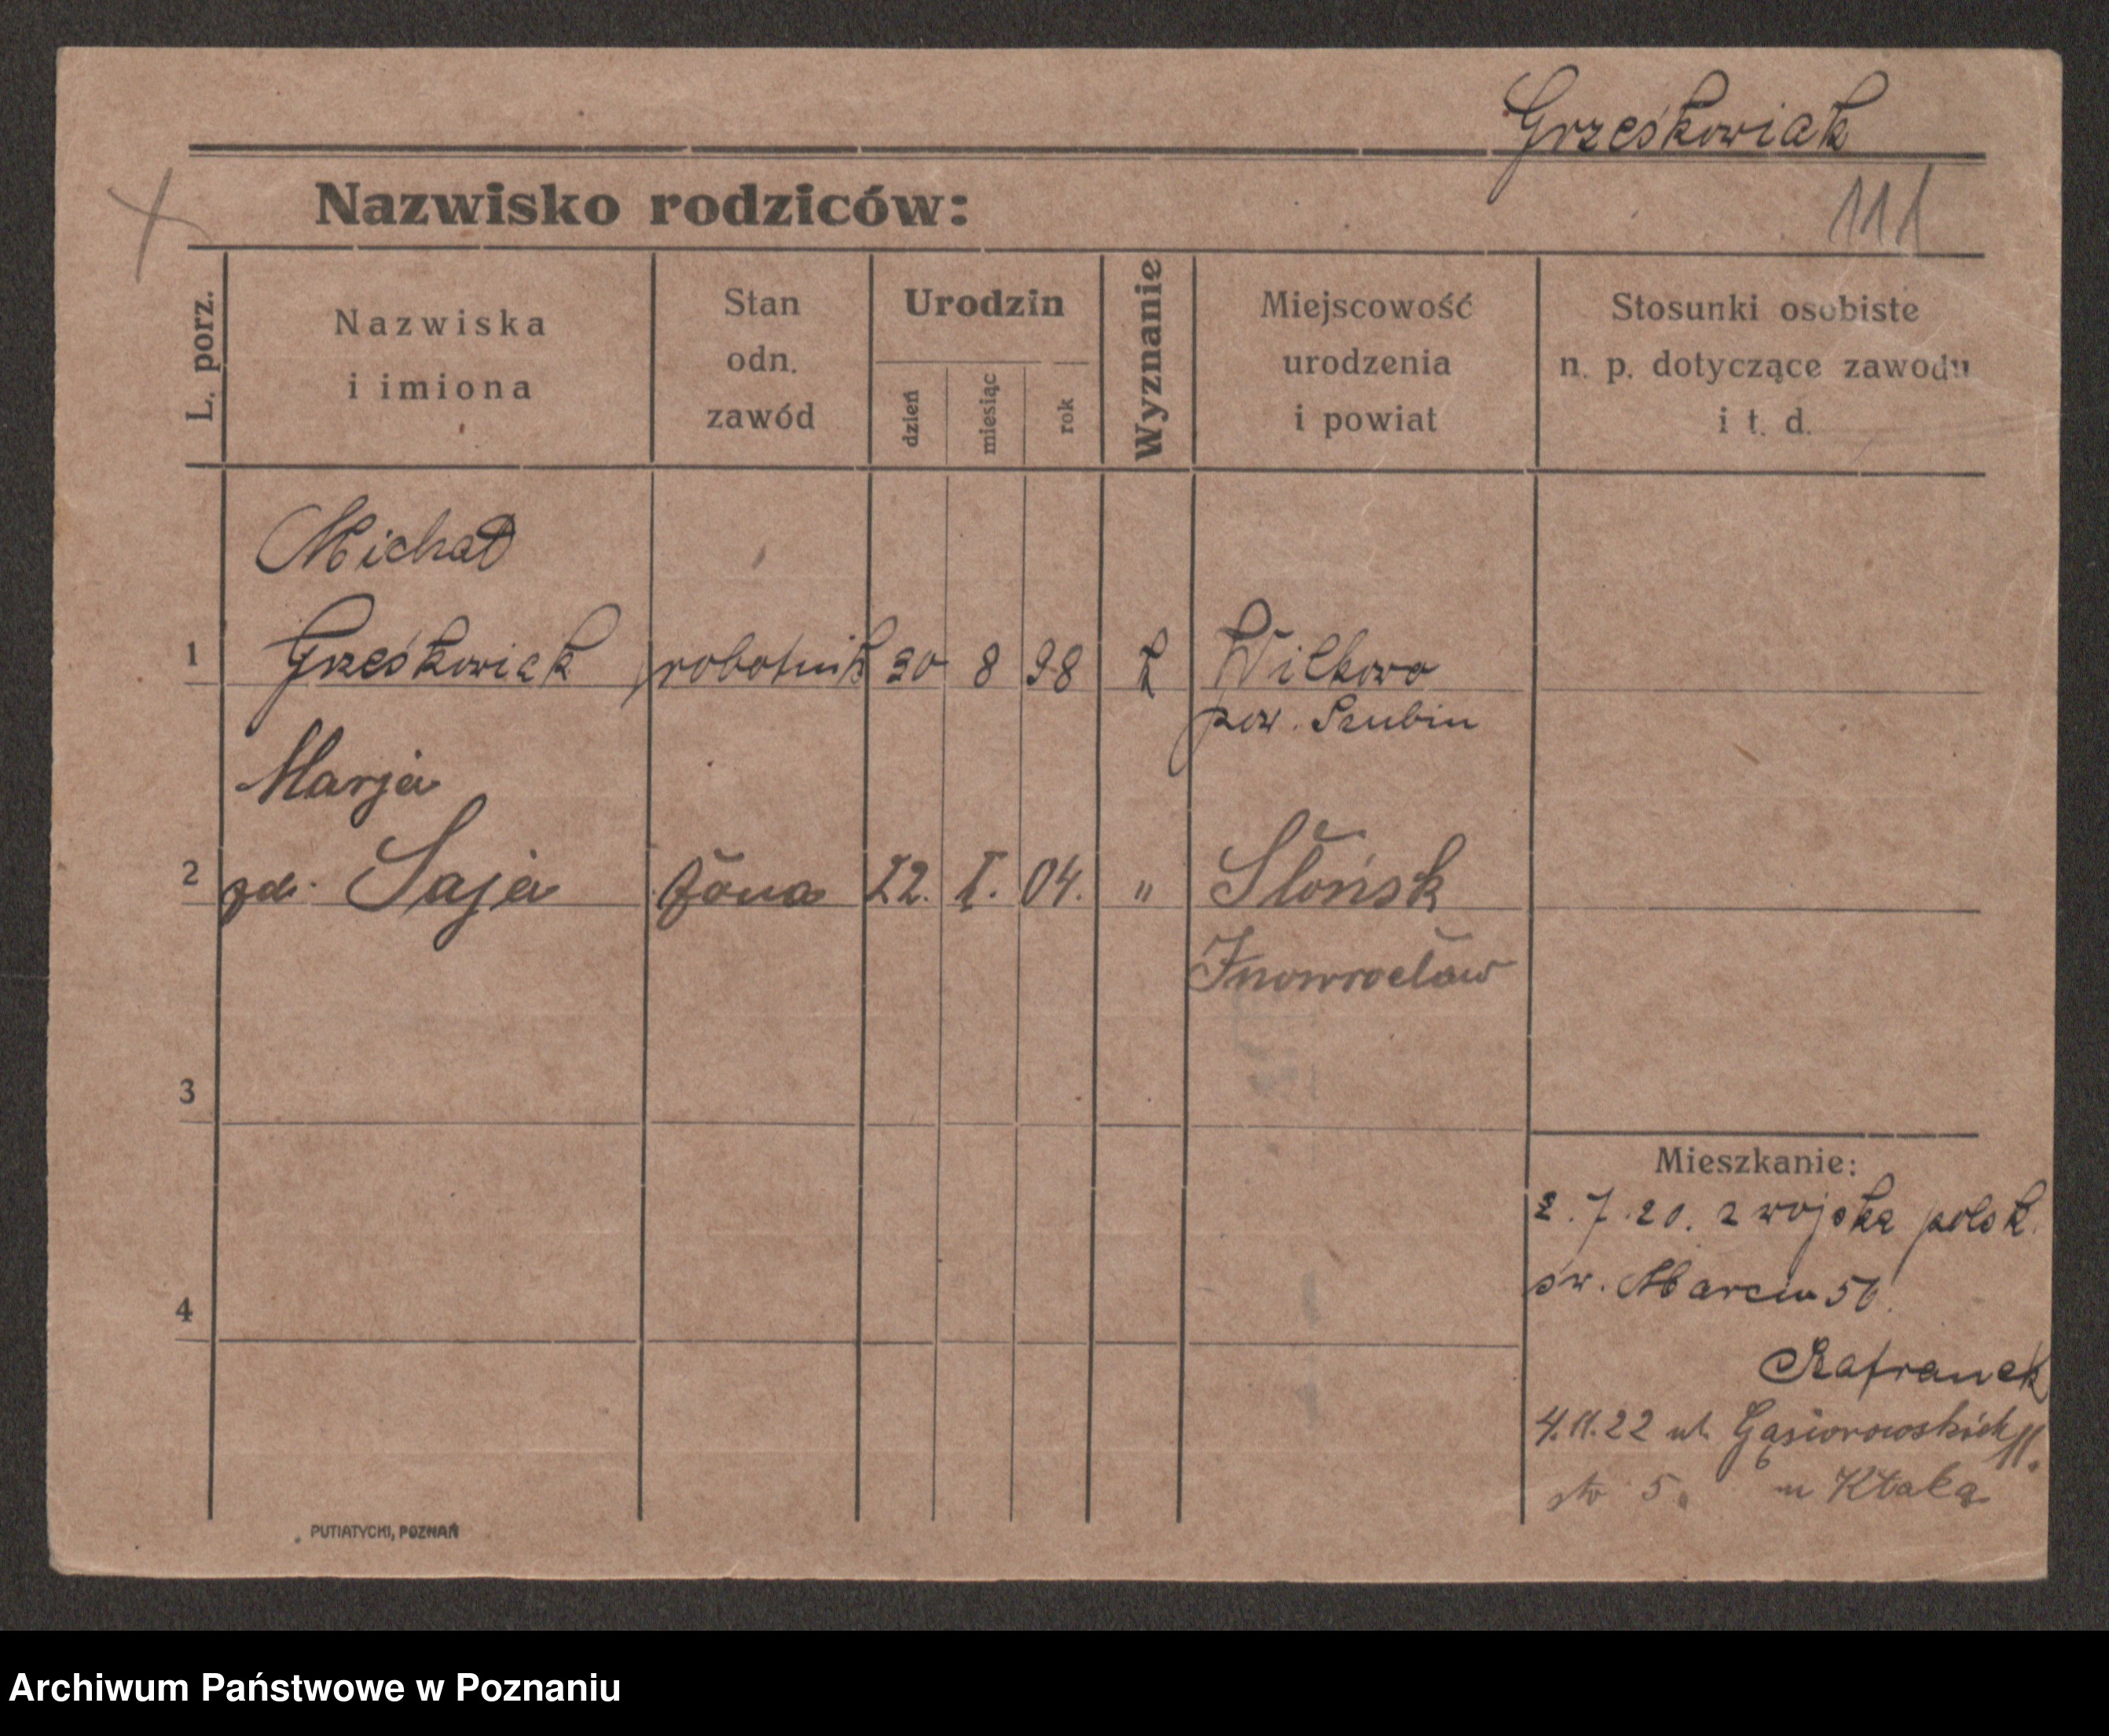 Grześkowiak
Nazwisko rodziców:
111
L. porz.
Nazwiska
i imiona
Stan
odn.
zawód
Urodzin
dzień
miesiąc
rok
Wyznanie
Miejscowość
urodzenia
i powiat
Stosunki osobiste
n. p. dotyczące zawodu
i t. d.
Michał
1 Grześkowiak robotnik 30 8 98 k Wilkowo
pow. Szubin
Marja
2 zd. Saja żona 22. I. 04. " Słońsk
Inowrocław
3
4
Mieszkanie:
2.7.20. z wojska polsk.
św. Marcin 56.
Szafranek
4.11.22 ul. Gąsiorowskich
5. u
PUTIATYCKI, POZNAŃ
Archiwum Państwowe w Poznaniu